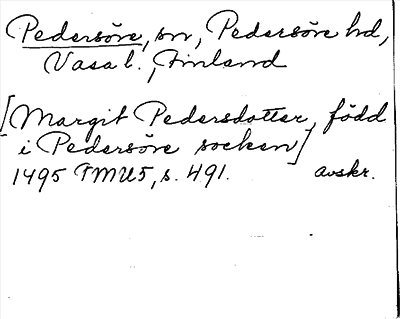 Pedersöre, sn, Pedersöre hd,
Vasa l., Finland
[Margit Pedersdotter, född
i Pedersöre socken]
1495 FMU5, s. 491. avskr.